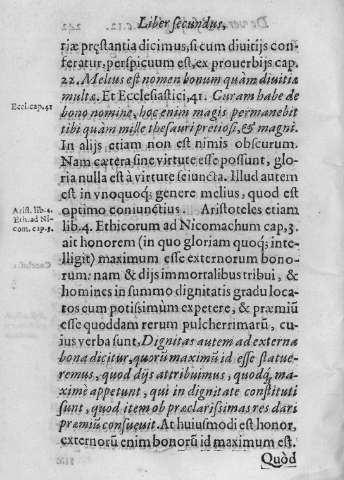 Liber secundus,
riæ pręstantia dicimus, si cum diuitijs con-
feratur, perspicuum est, ex prouerbijs cap.
22. Melius est nomen bonum quàm diuitiæ
multæ. Et Ecclesiastici, 41. Curam habe de
Eccl. cap. 41
bono nomine, hoc enim magis permanebit
tibi quàm mille thesauri pretiosi, & magni.
In alijs etiam non est nimis obscurum.
Nam cætera sine virtute esse possunt, glo-
ria nulla est à virtute seiuncta. Illud autem
est in vnoquoq; genere melius, quod est
optimo coniunctius. Aristoteles etiam
Arist. lib. 4.
Eth. ad Ni-
com. cap. 3.
lib. 4. Ethicorum ad Nicomachum cap, 3.
ait honorem (in quo gloriam quoq; inte-
lligit) maximum esse externorum bono-
rum: nam & dijs immortalibus tribui, &
homines in summo dignitatis gradu loca-
tos eum potissimùm expetere, & præmiũ
esse quoddam rerum pulcherrimarũ, cu-
ius verba sunt. Dignitas autem ad externa
bona dicitur, quorũ maximũ id esse statue-
remus, quod dijs attribuimus, quodq́, ma-
ximè appetunt, qui in dignitate constituti
sunt, quod item ob præclarissimas res dari
præmiũ consueuit. At huiusmodi est honor,
externorũ enim bonorũ id maximum est.
Quòd